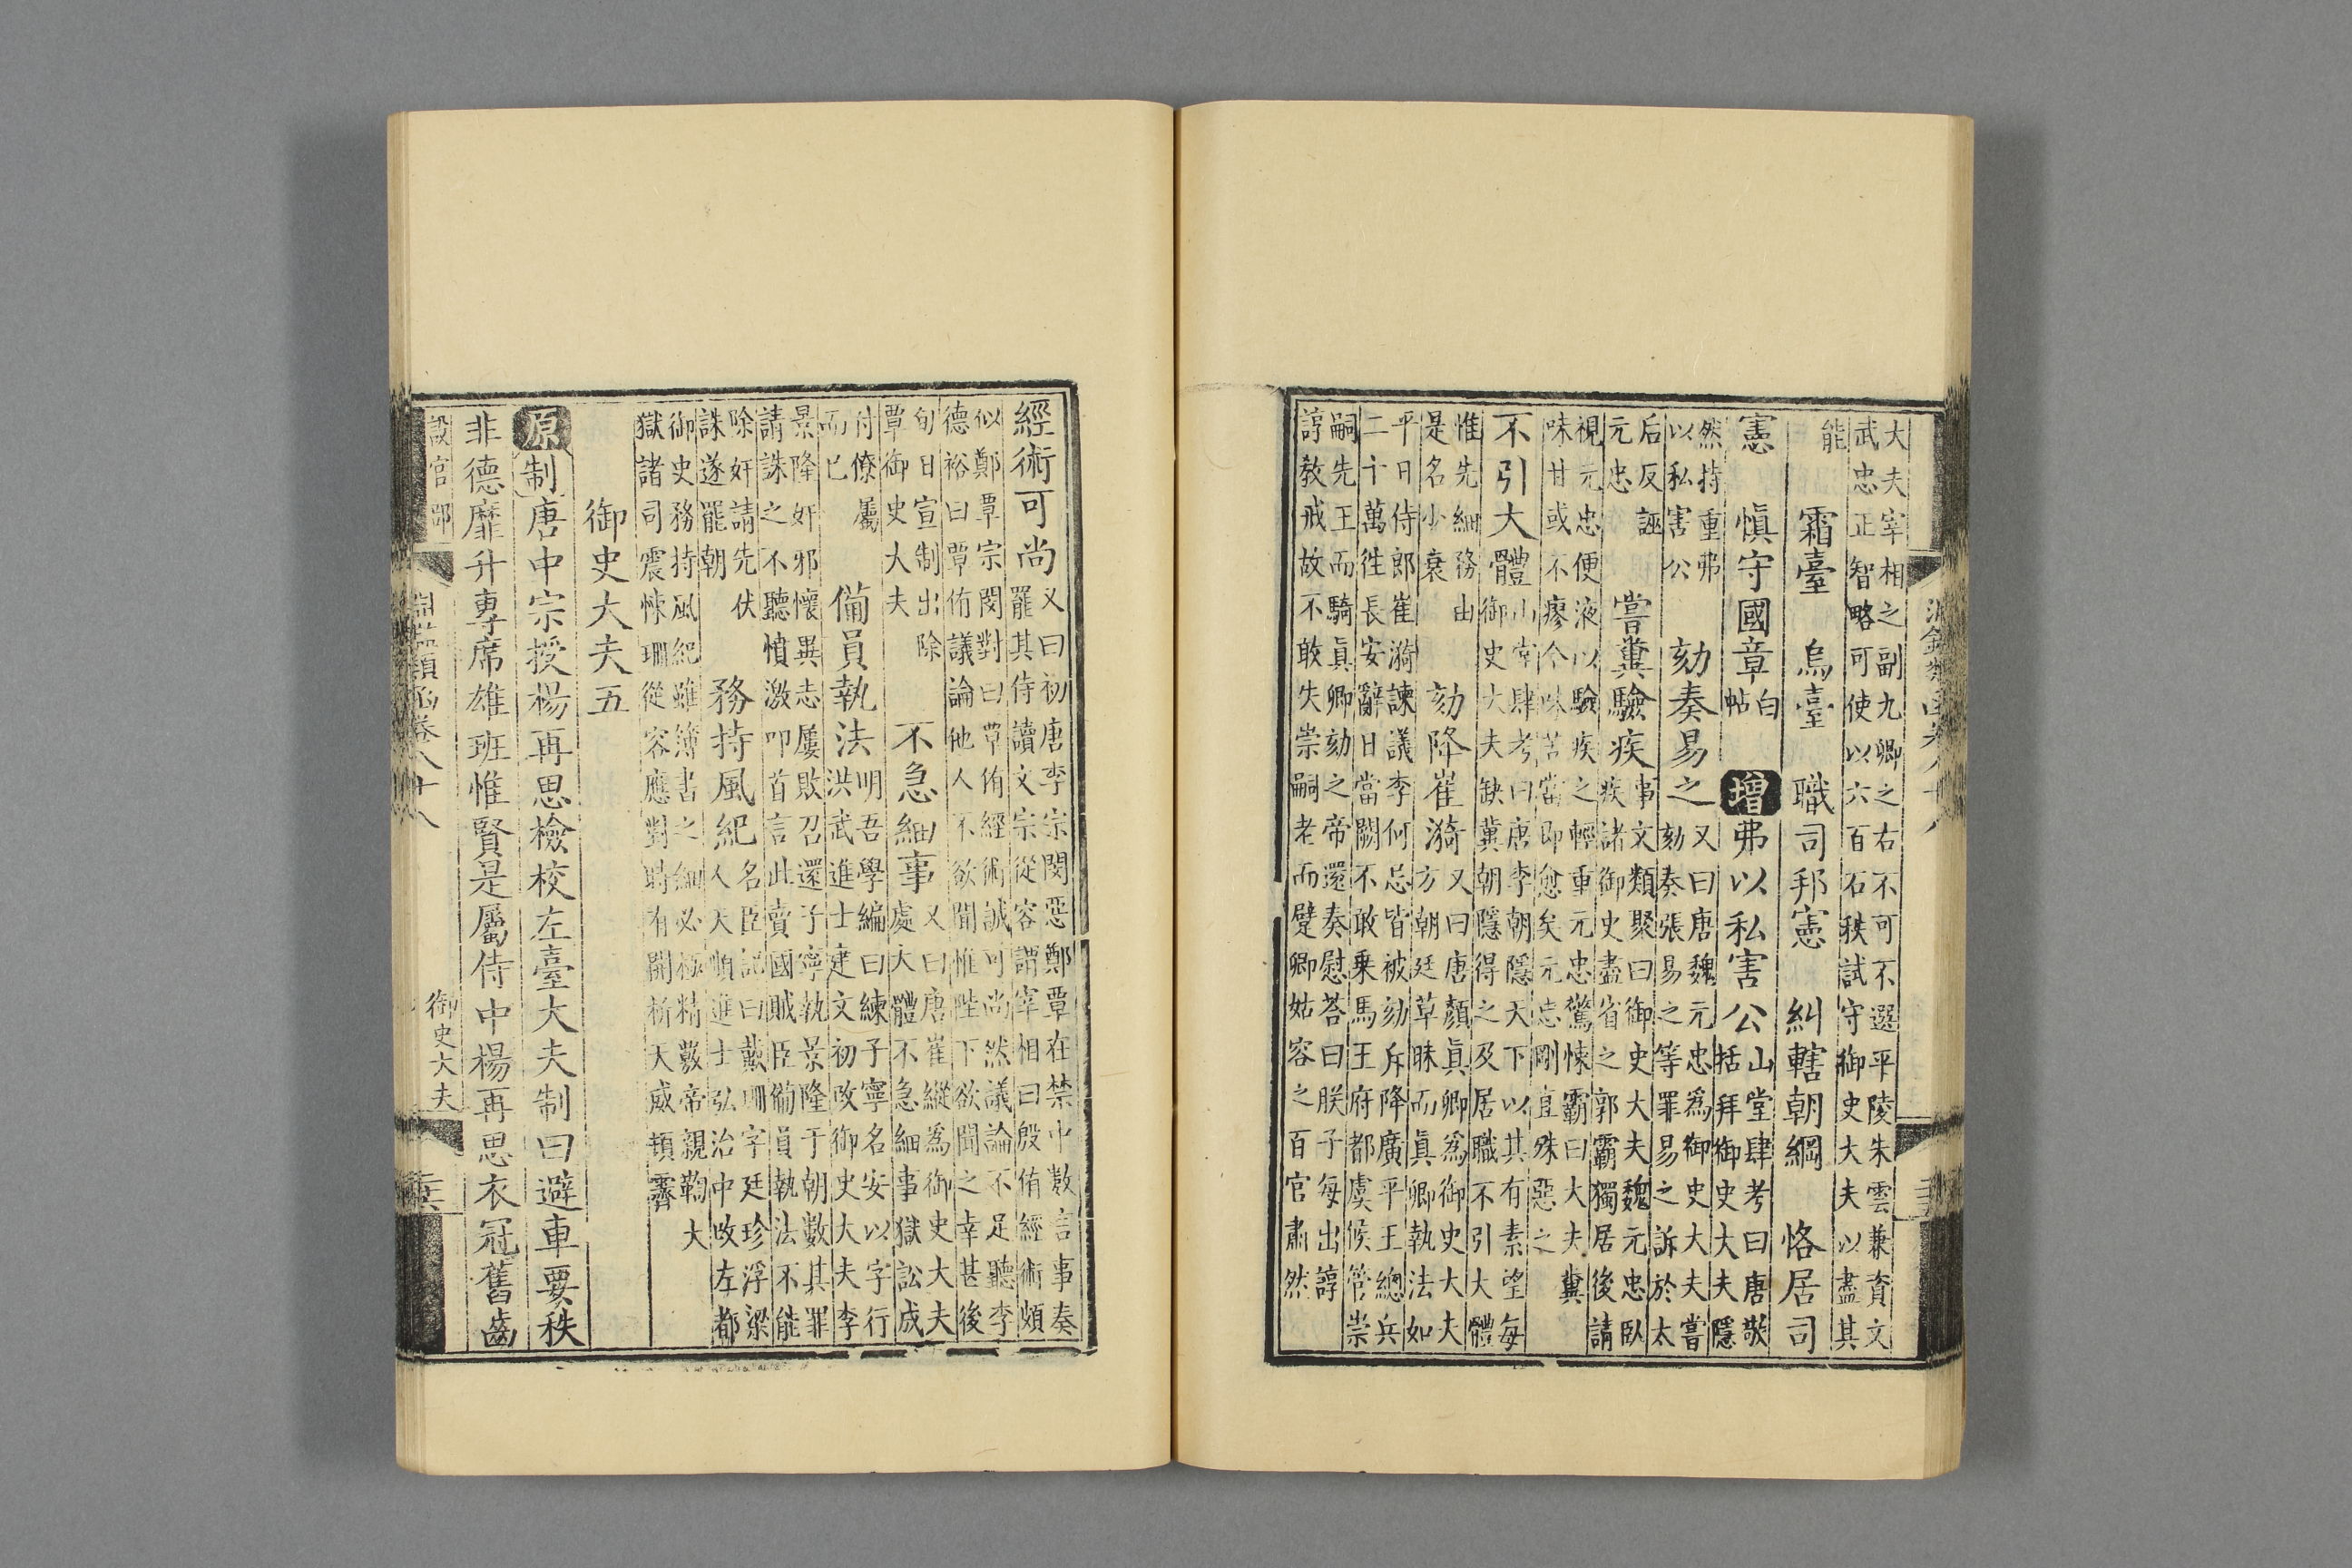 大夫宰相之副九卿之右不可不選平陵朱雲兼資文
武忠正智略可使以六百石秩試守御史大夫以盡其
能　霜臺　烏臺　職司邦憲　糾轄朝綱　恪居司
憲　慎守國章
白
帖
增弗以私害公
山堂肆考曰唐敬
括拜御史大夫隱
然持重弗
以私害公
劾奏易之
又曰唐魏元忠爲御史大夫嘗
劾奏張易之等罪易之訴於太
后反誣
元忠
嘗糞驗疾
事文類聚曰御史大夫魏元忠臥
疾諸御史盡省之郭霸獨居後請
視元忠便液以驗疾之輕重元忠驚悚霸曰大夫糞
味甘或不瘳今味苦當即愈矣元忠剛直殊惡之
不引大體
山堂肆考曰唐李朝隱天下以其有素望每
御史大夫缺冀朝隱得之及居職不引大體
惟先細務由
是名少衰
劾降崔漪
又曰唐顏眞卿爲御史大夫
方朝廷草昧而眞卿執法如
平日侍郎崔漪諫議李何忌皆被劾斥降廣平王總兵
二十萬徃長安辭日當闕不敢乗馬王府都虞候管崇
嗣先王而騎眞卿劾之帝還奏慰荅曰朕子每出諄
諄教戒故不敢失崇嗣老而躄卿姑容之百官肅然
經術可尚
又曰初唐李宗閔惡鄭覃在禁中數言事奏
罷其侍讀文宗從容謂宰相曰殷侑經術頗
似鄭覃宗閔對曰覃侑經術誠可尚然議論不足聽李
德裕曰覃侑議論他人不欲聞惟陛下欲聞之幸甚後
旬日宣制出除
覃御史大夫
不急細事
又曰唐崔縱爲御史大夫
處大體不急細事獄訟成
付僚屬
而已
備員執法
明吾學編曰練子寧名安以字行
洪武進士建文初改御史大夫李
景隆奸邪懷異志屢敗召還子寧執景隆于朝數其罪
請誅之不聽憤激叩首言此賣國賊臣備員執法不能
除奸請先伏
誅遂罷朝
務持風紀
名臣記曰戴珊字廷珍浮梁
人天順進士弘治中改左都
御史務持風紀雖簿書之細必極精覈帝親鞫大
獄諸司震悚珊從容應對時有開析天威頓霽
御史大夫五
原制唐中宗授楊再思檢校左臺大夫制曰避車要秩
非德靡升專席雄班惟賢是屬侍中楊再思衣冠舊齒
設官部
淵鑑類函卷八十八
御史大夫